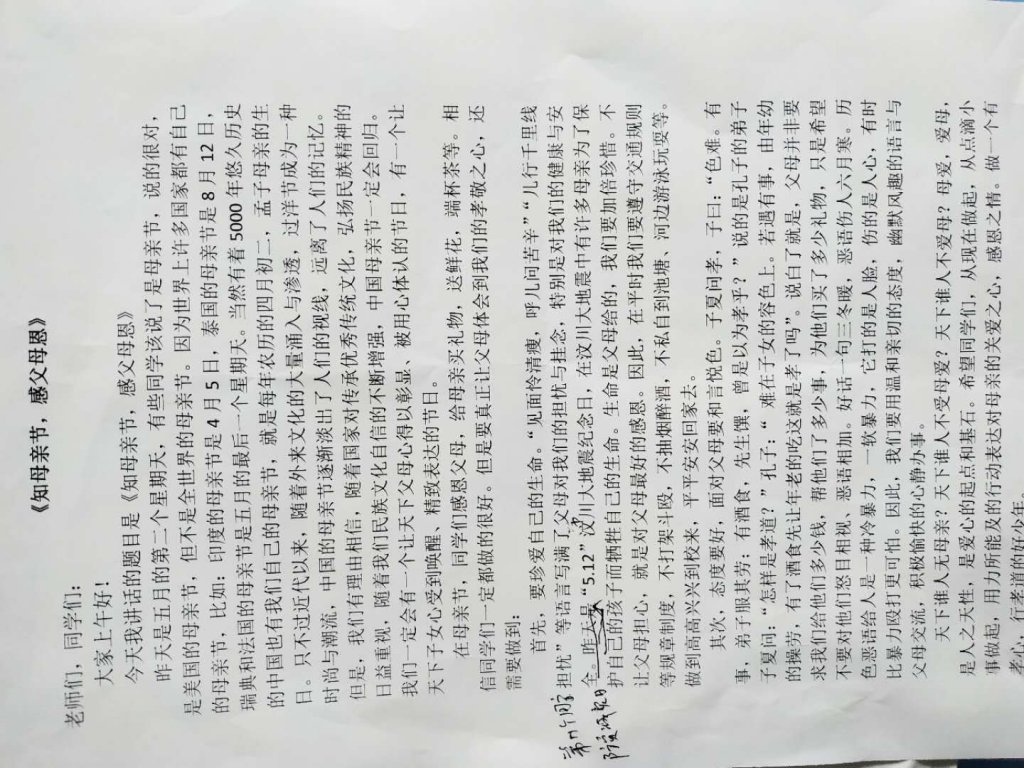 《知母亲节，感父母恩》
老师们，同学们：
大家上午好！
今天我讲话的题目是《知母亲节，感父母恩》
昨天是五月的第二个星期天，有些同学该说了是母亲节，说的很对，
是美国的母亲节，但不是全世界的母亲节。因为世界上许多国家都有自己
的母亲节，比如：印度的母亲节是4月5日，泰国的母亲节是8月12日，
瑞典和法国的母亲节是五月的最后一个星期天。当然有着5000年悠久历史
的中国也有我们自己的母亲节，就是每年农历的四月初二，孟子母亲的生
日。只不过近代以来，随着外来文化的大量涌入与渗透，过洋节成为一种
时尚与潮流，中国的母亲节逐渐淡出了人们的视线，远离了人们的记忆。
但是，我们有理由相信，随着国家对传承优秀传统文化，弘扬民族精神的
日益重视，随着我们民族文化自信的不断增强，中国母亲节一定会回归。
我们一定会有一个让天下父母心得以彰显、被用心体认的节日，有一个让
天下子女心受到唤醒、精致表达的节日。
在母亲节，同学们感恩父母，给母亲买礼物，送鲜花，端杯茶等。相
信同学们一定都做的很好。但是要真正让父母体会到我们的孝敬之心，还
需要做到：
首先，要珍爱自己的生命。“见面怜清瘦，呼儿问苦辛”“儿行千里线
担忧”等语言写满了父母对我们的担忧与挂念，特别是对我们的健康与安
全。昨天是“5.12”汶川大地震纪念日，在汶川大地震中有许多母亲为了保
护自己的孩子而牺牲自己的生命。生命是父母给的，我们要加倍珍惜。不
让父母担心，就是对父母最好的感恩。因此，在平时我们要遵守交通规则
等规章制度，不打架斗殴，不抽烟醉酒，不私自到池塘、河边游泳玩耍等。
做到高高兴兴到校来，平平安安回家去。
其次，态度要好，面对父母要和言悦色。子夏问孝，子曰：“色难。有
事，弟子服其劳；有酒食，先生馔，曾是以为孝乎？”说的是孔子的弟子
子夏问：“怎样是孝道？”孔子：“难在子女的容色上。若遇有事，由年幼
的操劳，有了酒食先让年老的吃这就是孝了吗”。说白了就是，父母并非要
求我们给他们多少钱，帮他们了多少事，为他们买了多少礼物，只是希望
不要对他们怒目相视、恶语相加。好话一句三冬暖，恶语伤人六月寒。历
色恶语给人是一种冷暴力，一软暴力，它打的是人脸，伤的是人心，有时
比暴力殴打更可怕。因此，我们要用温和亲切的态度，幽默风趣的语言与
父母交流，积极愉快的心静办事。
天下谁人无母亲？天下谁人不受母爱？天下谁人不爱母？母爱，爱母，
是人之天性，是爱心的起点和基石。希望同学们，从现在做起，从点滴小
事做起，用力所能及的行动表达对母亲的关爱之心，感恩之情。做一个有
孝心，行孝道的好少年
第几个国家
防灾减灾日